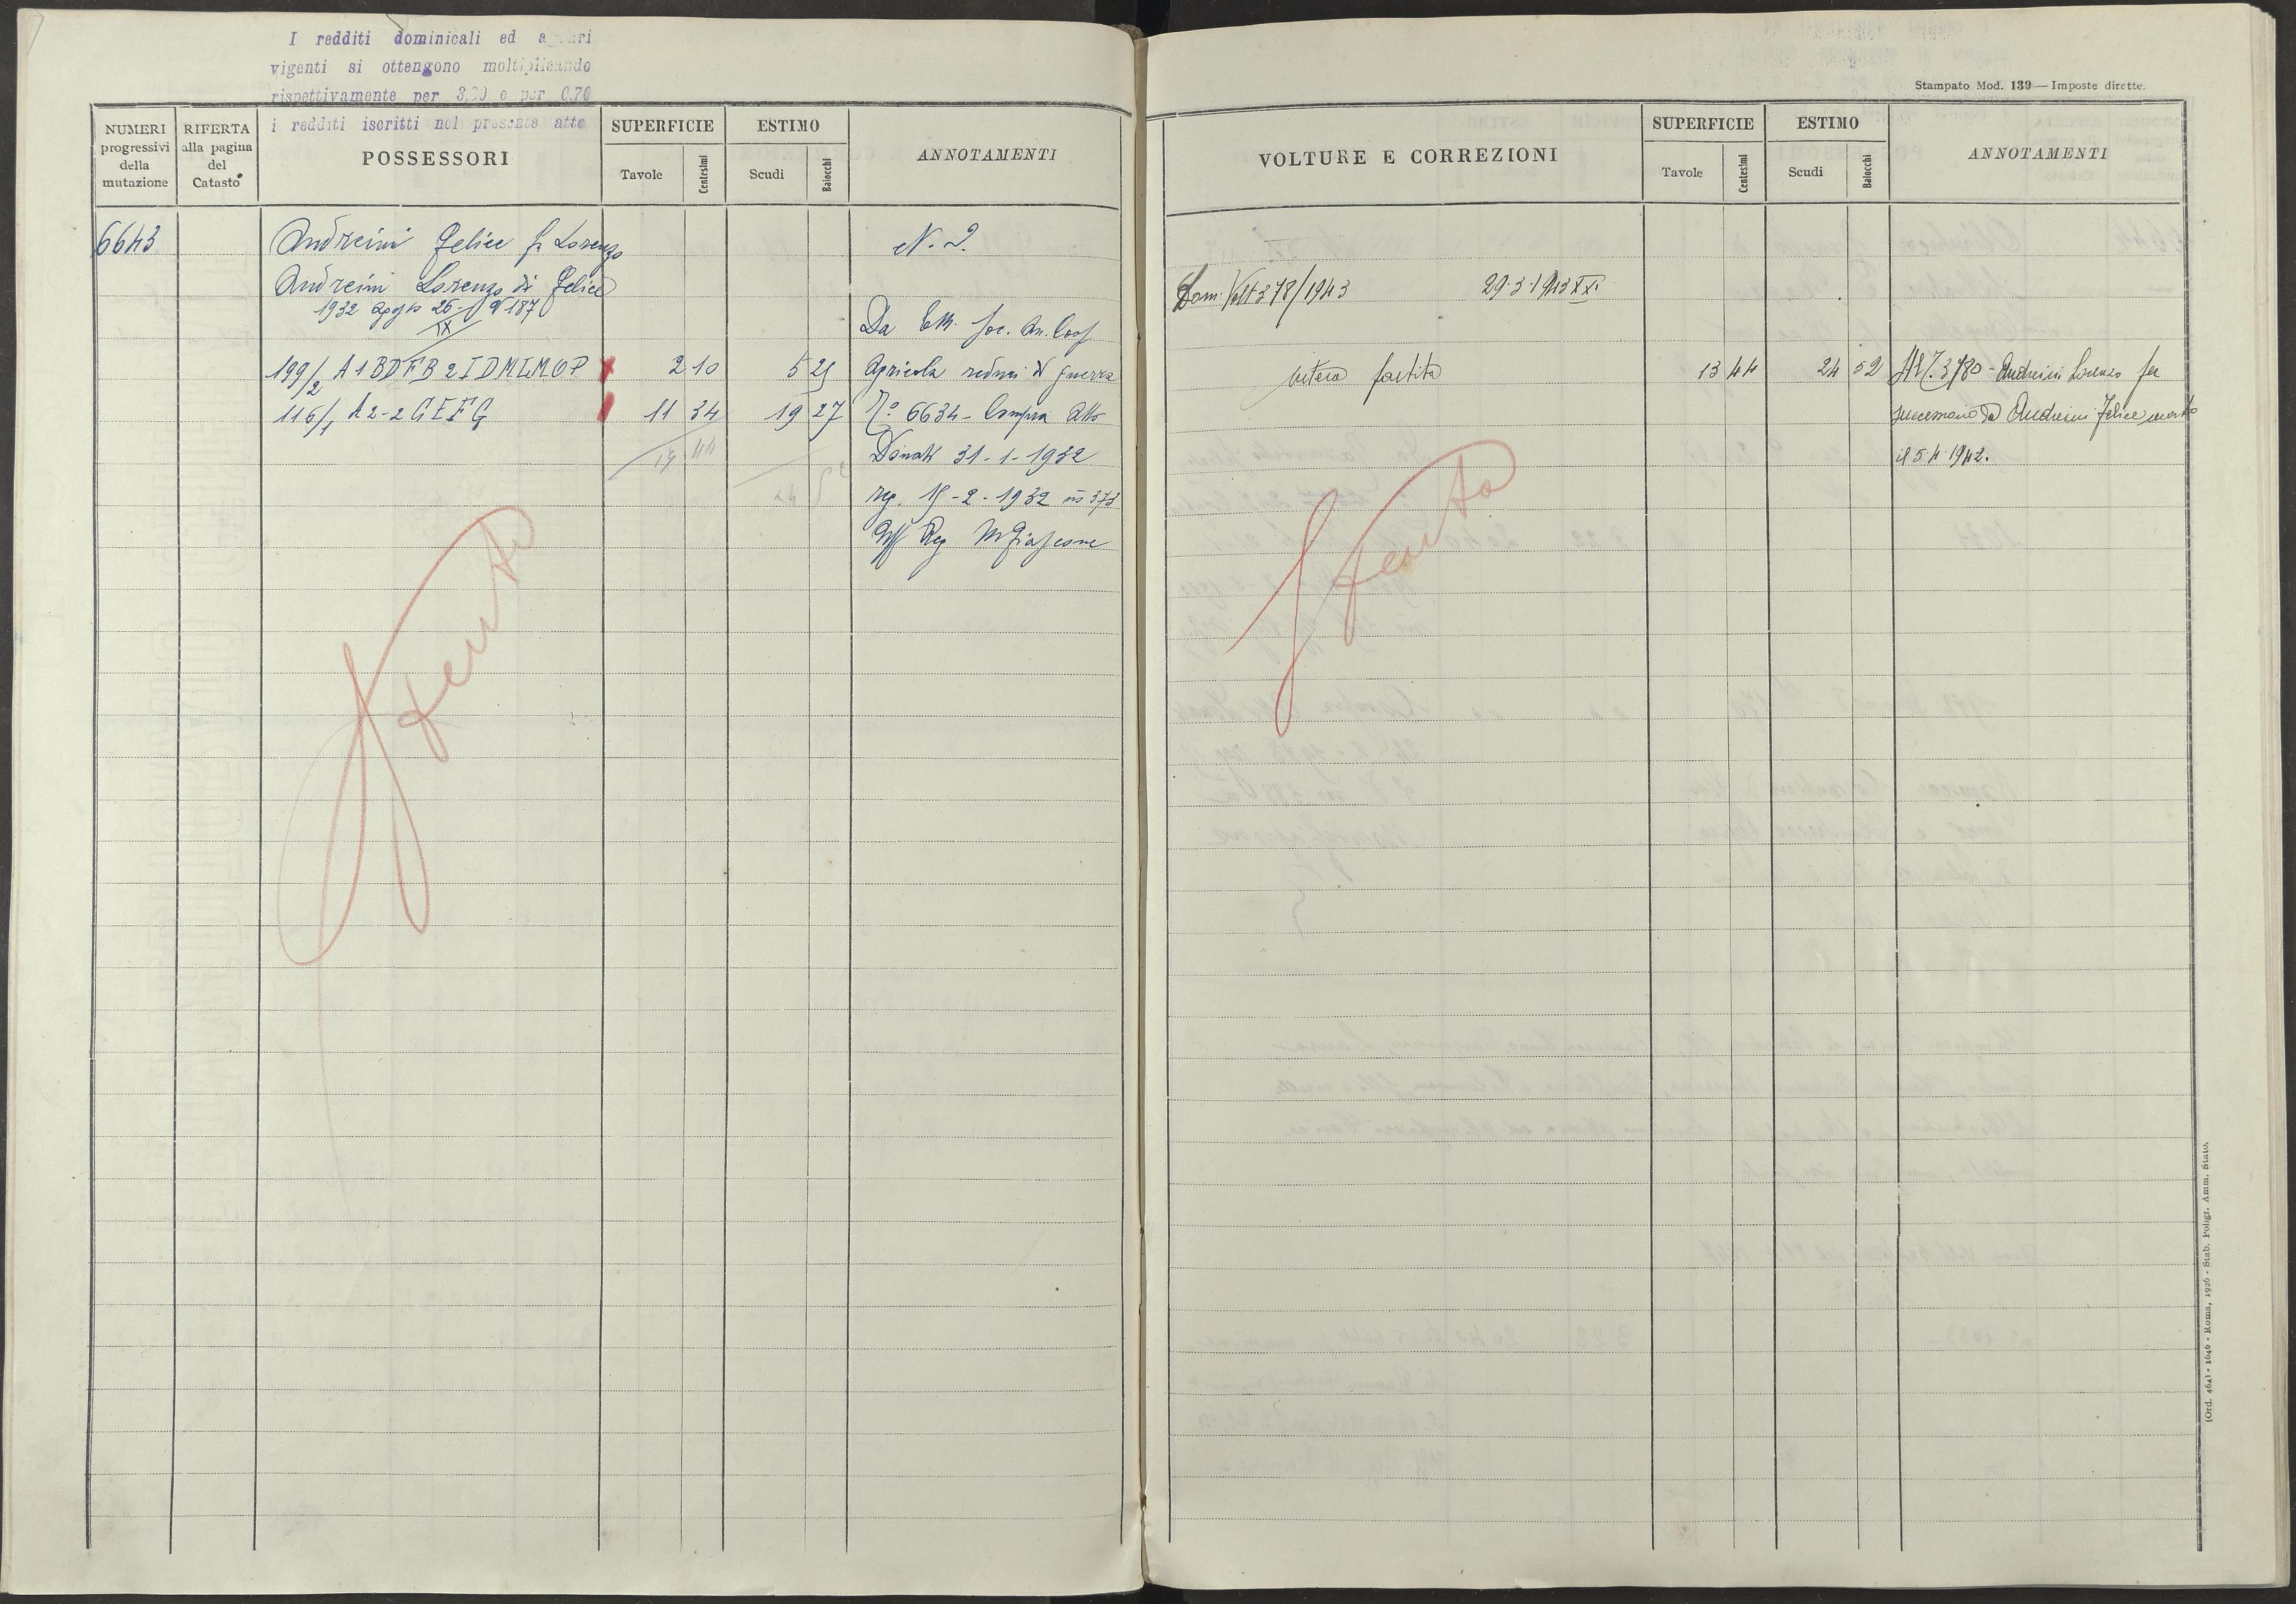 I redditi dominicali ed agrari
vigenti si ottengono moltiplicando
rispettivamente per 3,30 e per 0,70
i redditi iscritti nel presente atto
NUMERI progressivi della mutazione
RIFERTA alla pagina del Catasto
POSSESSORI
SUPERFICIE
Tavole
Centesimi
ESTIMO
Scudi
Baiocchi
ANNOTAMENTI
6643
Andreini Felice fu Lorenzo
N. 2.
Andreini Lorenzo di Felice
1932 Agosto 26 N 187
IX
Da Soc. An. Coop
199/2 A1BDFB2IDMLMOP 2 10 5 25
Agricola reduci di guerra
116/1 A2-2GEFG 11 34 19 27
N.º 6634 - Compra Atto
13 44
24 52
Donati 31-1-1932
reg. 15-2-1932 n 373
Uff Reg Mfiascone
Stento
Stampato Mod. 139 — Imposte dirette.
VOLTURE E CORREZIONI
SUPERFICIE
Tavole
Centesimi
ESTIMO
Scudi
Baiocchi
ANNOTAMENTI
Dom. Volt 378/1943 29·3·1943 XXI
intera partita 13 44 24 52
Al N. 3780 - Andreini Lorenzo per
successione da Andreini Felice morto
il 5·4·1942.
Stento
(Ord. 464) - 1646 - Roma, 1926 - Stab. Poligr. Amm. Stato.